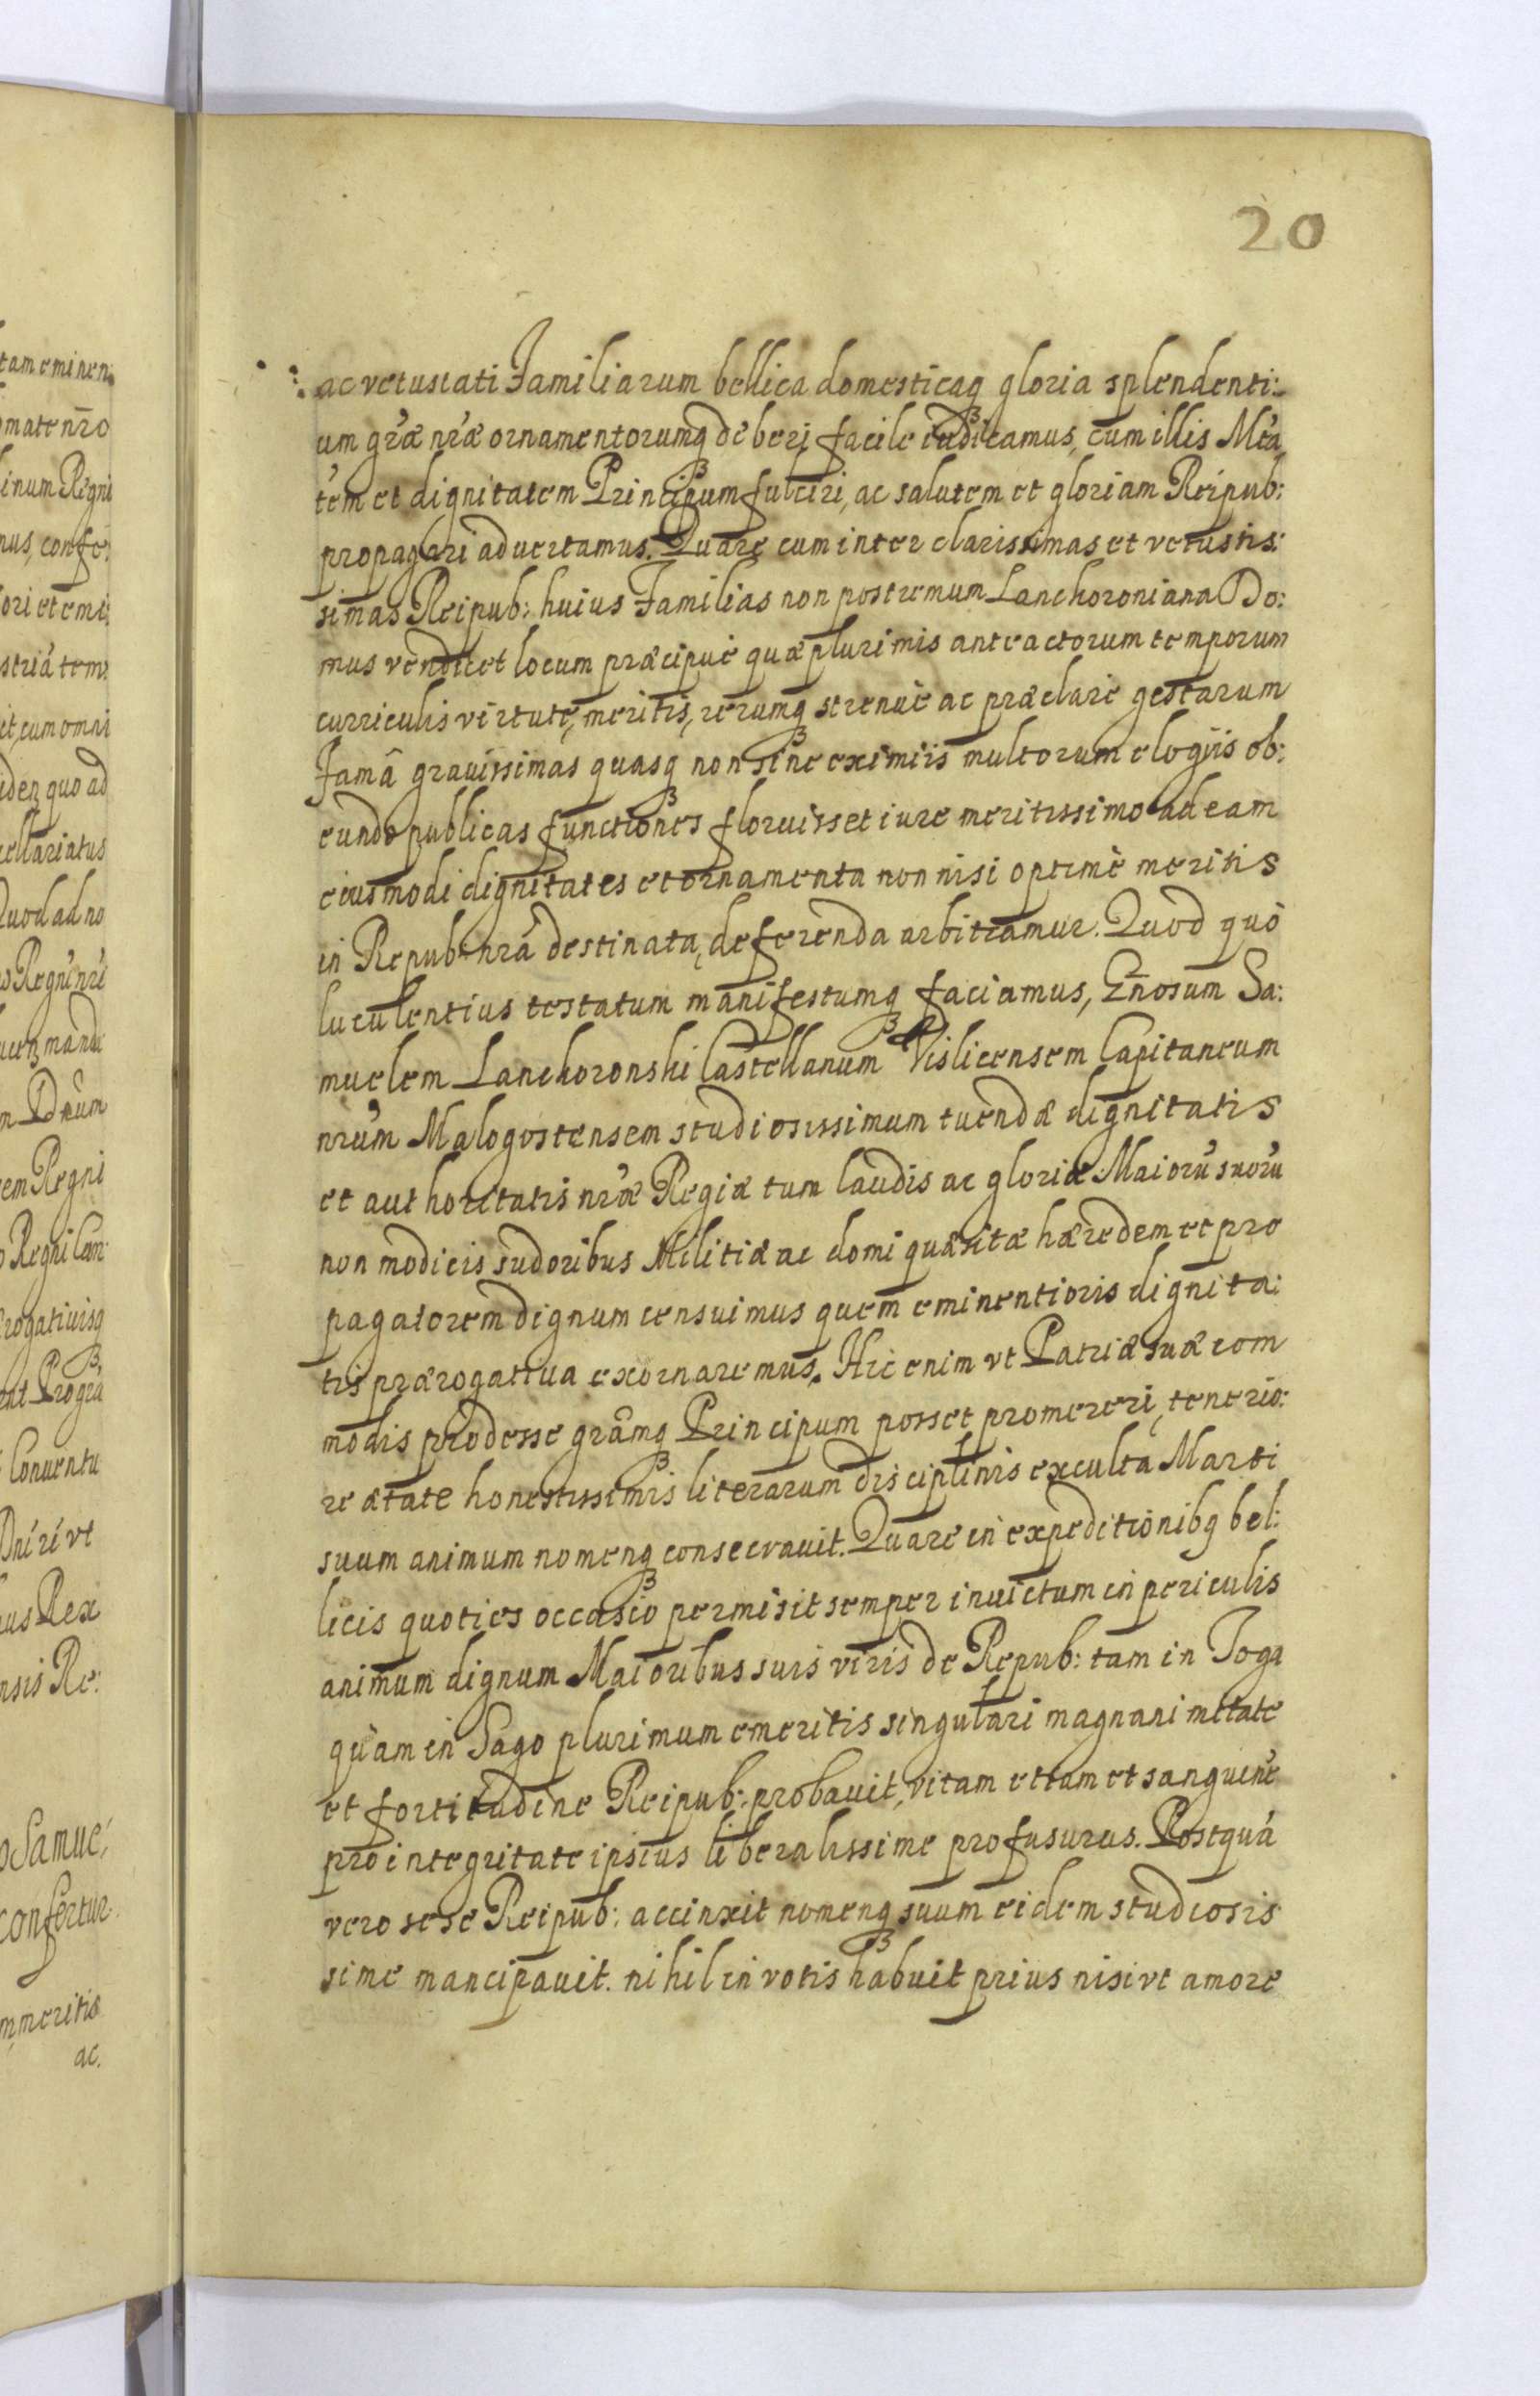 20
ac vetustati Familiarum bellica domesticaq₃ gloria splendenti:
um gr̃æ nr̃æ ornamentorumq₃ deberi facile iudicamus, cum illis M̃ta
tem et dignitatem Principum fulciri, ac salutem et gloriam Reipub:
propagari aduertamus. Quare cum inter clarissimas et vetustis:
simas Reipub: huius Familias non postremum Lanchoroniana Do:
mus vendicet locum præcipuè quæ plurimis anteactorum temporum
curriculis virtute, meritis, rerumq₃ strenuè ac præclare gestarum
Famâ grauissimas quasq₃ non sine eximiis multorum elogiis ob:
eundo publicas functiones floruisset iure meritissimo ad eam
eiusmodi dignitates et ornamenta non nisi optimè meritis
in Repub: nr̃a destinata, deferenda arbitramur. Quod quò
luculentius testatum manifestumq₃ faciamus, Gñosum Sa:
muelem Lanchoronski Castellanum Vislicensem Capitaneum
nr̃um Malogostensem studiosissimum tuendæ dignitatis
et authoritatis nr̃æ Regiæ tum laudis ac gloriæ Maiorũ suorũ
non modicis sudoribus Militiæ ac domi quæsitæ hæredem et pro
pagatorem dignum censuimus quem eminentioris dignita:
tis prærogatiua exornaremus. Hic enim vt Patriæ suæ com
modis prodesse grãmq₃ Principum posset promereri, tenerio:
re ætate honestissimis literarum disciplinis exculta Marti
suum animum nomenq₃ consecrauit. Quare in expeditionibq₃ bel:
licis quoties occasio permisit semper inuictum in periculis
animum dignum Maioribus suis viris de Repub: tam in Toga
quàm in Sago plurimum emeritis singulari magnanimitate
et fortitudine Reipub: probauit, vitam etiam et sanguinẽ
pro integritate ipsius liberalissime profusurus. Postquã
vero sese Reipub: accinxit nomenq₃ suum eidem studiosis
sime mancipauit. nihil in votis habuit prius nisi vt amore